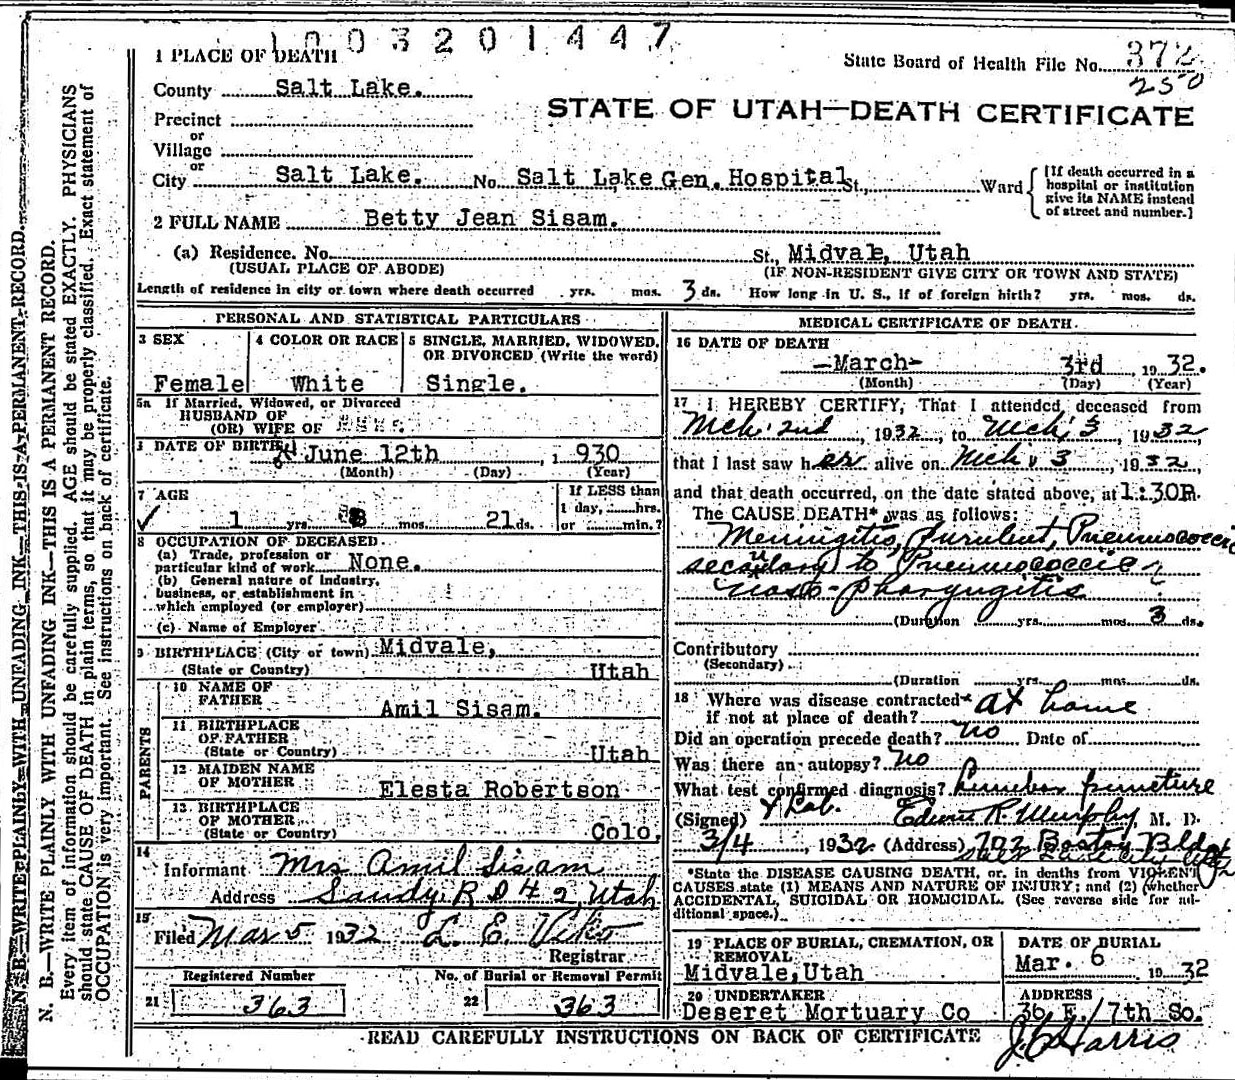 1003201447
1 PLACE OF DEATH
State Board of Health File No. 372
250
County Salt Lake.
STATE OF UTAH—DEATH CERTIFICATE
Precinct
or
Village
or
City Salt Lake. No. Salt Lake Gen. Hospital St., Ward
[If death occurred in a hospital or institution give its NAME instead of street and number.]
2 FULL NAME Betty Jean Sisam.
(a) Residence. No. St., Midvale, Utah
(USUAL PLACE OF ABODE) (IF NON-RESIDENT GIVE CITY OR TOWN AND STATE)
Length of residence in city or town where death occurred yrs. mos. 3 ds. How long in U. S., if of foreign birth? yrs. mos. ds.
PERSONAL AND STATISTICAL PARTICULARS
3 SEX 4 COLOR OR RACE 5 SINGLE, MARRIED, WIDOWED, OR DIVORCED (Write the word)
Female White Single.
5a If Married, Widowed, or Divorced
HUSBAND OF
(OR) WIFE OF
DATE OF BIRTH June 12th, 1930
(Month) (Day) (Year)
7 AGE If LESS than
1 day, hrs.
1 yrs. 8 mos. 21 ds. or min.?
8 OCCUPATION OF DECEASED.
(a) Trade, profession or
particular kind of work None.
(b) General nature of industry,
business, or establishment in
which employed (or employer)
(c) Name of Employer
9 BIRTHPLACE (City or town) Midvale,
(State or Country) Utah
PARENTS
10 NAME OF
FATHER Amil Sisam.
11 BIRTHPLACE
OF FATHER
(State or Country) Utah
12 MAIDEN NAME
OF MOTHER Elesta Robertson
13 BIRTHPLACE
OF MOTHER
(State or Country) Colo.
14
Informant Mrs Amil Sisam
Address Sandy R D # 2, Utah
15
Filed Mar 5 1932 L. E. Viko
Registrar
Registered Number No. of Burial or Removal Permit
21 363 22 363
MEDICAL CERTIFICATE OF DEATH.
16 DATE OF DEATH
—March— 3rd, 1932.
(Month) (Day) (Year)
17 I HEREBY CERTIFY, That I attended deceased from
Mch 2nd, 1932, to Mch 3, 1932,
that I last saw her alive on Mch 3, 1932,
and that death occurred, on the date stated above, at 1:30P.
The CAUSE DEATH* was as follows:
Meningitis, Purulent, Pneumococcic
secondary to Pneumococcic
naso-pharyngitis
(Duration yrs. mos. 3 ds.
Contributory
(Secondary)
(Duration yrs. mos. ds.
18 Where was disease contracted at home
if not at place of death?
Did an operation precede death? no Date of
Was there an autopsy? no
What test confirmed diagnosis? Lumbar puncture
& Lab.
(Signed) Edwin R. Murphy M. D.
3/4, 1932. (Address) 702 Boston Bldg
Salt Lake City Utah
*State the DISEASE CAUSING DEATH, or, in deaths from VIOLENT
CAUSES state (1) MEANS AND NATURE OF INJURY; and (2) (whether
ACCIDENTAL, SUICIDAL OR HOMICIDAL. (See reverse side for ad-
ditional space.)
19 PLACE OF BURIAL, CREMATION, OR REMOVAL DATE OF BURIAL
Midvale, Utah Mar. 6 1932
20 UNDERTAKER ADDRESS
Deseret Mortuary Co 36 E. 7th So.
J C Harris
READ CAREFULLY INSTRUCTIONS ON BACK OF CERTIFICATE
N. B.—WRITE PLAINLY WITH UNFADING INK—THIS IS A PERMANENT RECORD.
N. B.—WRITE PLAINLY WITH UNFADING INK—THIS IS A PERMANENT RECORD.
Every item of information should be carefully supplied. AGE should be stated EXACTLY. PHYSICIANS
should state CAUSE OF DEATH in plain terms, so that it may be properly classified. Exact statement of
OCCUPATION is very important. See instructions on back of certificate.